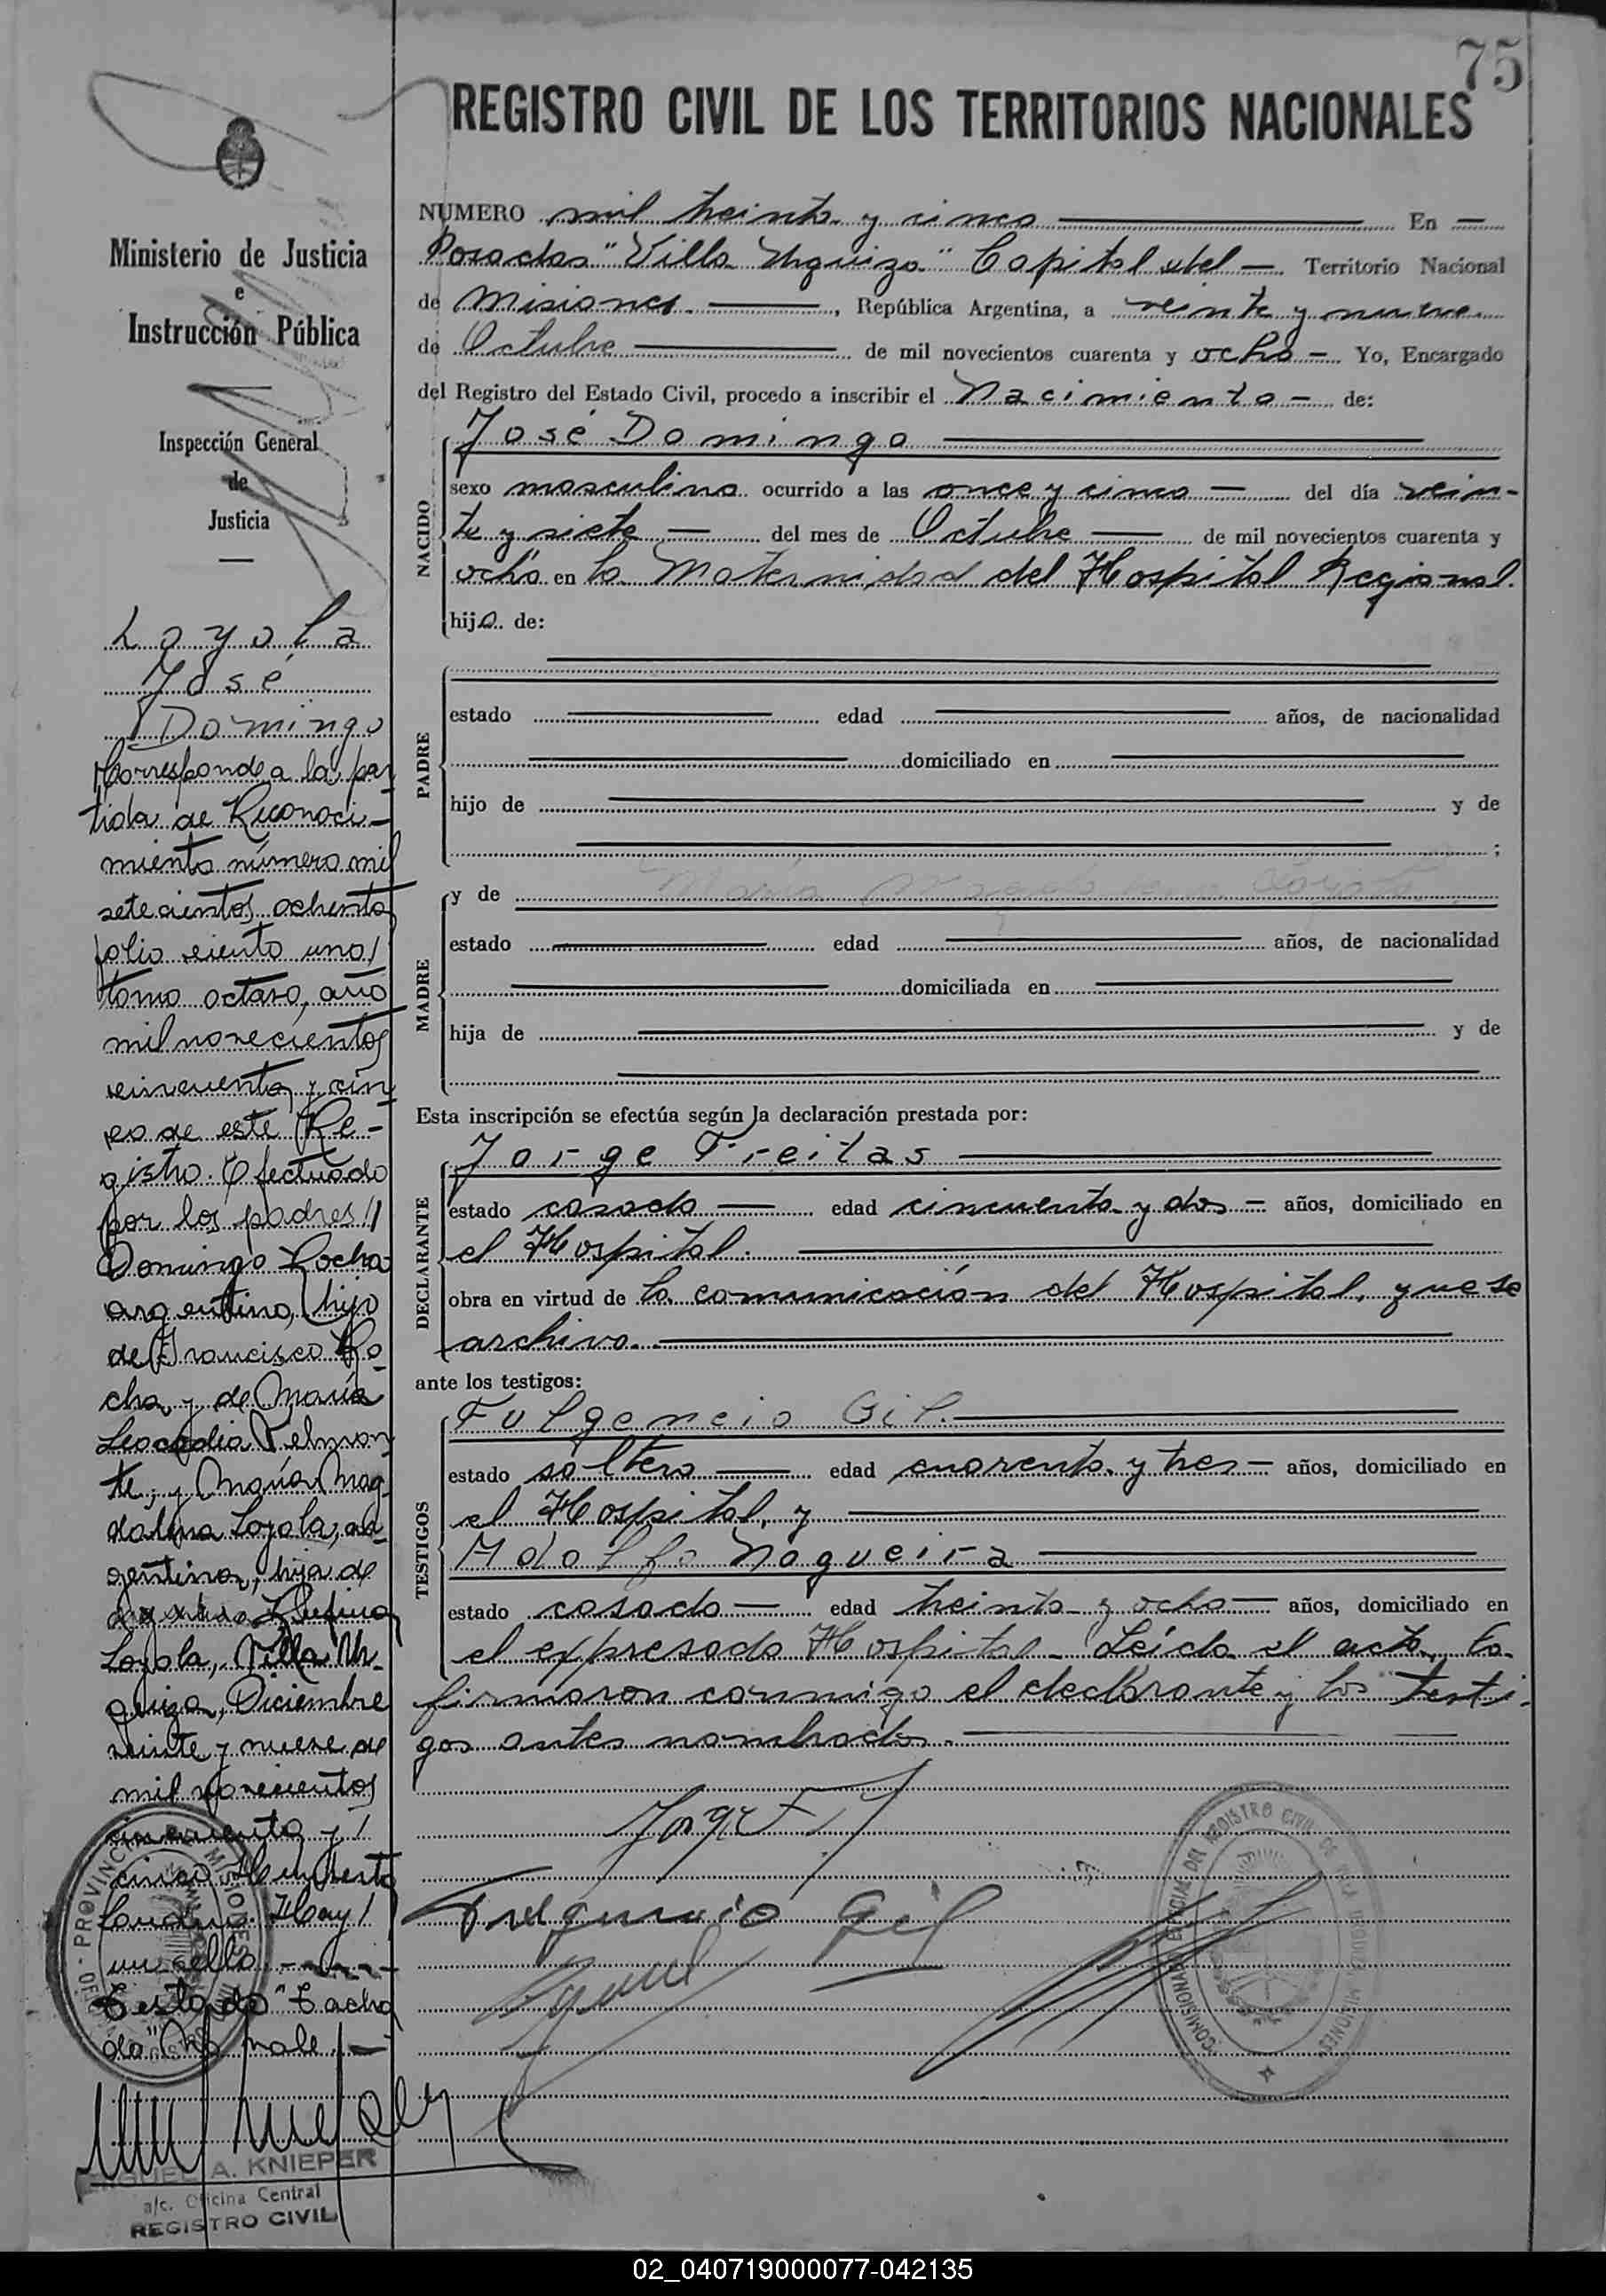 75
REGISTRO CIVIL DE LOS TERRITORIOS NACIONALES
Ministerio de Justicia
e
Instrucción Pública
Inspección General
de
Justicia
Loyola
José
Domingo
Corresponde a la par
tida de Reconoci-
miento número mil
setecientos ochenta
folio ciento uno/
tomo octavo, año
mil novecientos
cincuenta y cin
co de este Re-
gistro. Efectuado
por los padres //
Domingo Rocha
argentino, hijo
de Francisco Ro-
cha y de María
Leocadia Velmon
te, y María Mag
dalena Loyola, ar-
gentina, hija de
Rufina
Loyola, Villa Ur-
quiza, Diciembre
veinte y nueve de
mil novecientos
cincuenta y /
cinco Humberto
Hay /
un sello.-
Testado "Tacha
do" No vale.-
PROVINCIA DE MISIONES
MIGUEL A. KNIEPER
a/c. Oficina Central
REGISTRO CIVIL
NUMERO mil treinta y cinco En
Posadas "Villa Urquiza" Capital del Territorio Nacional
de Misiones , República Argentina, a veinte y nueve
de Octubre de mil novecientos cuarenta y ocho Yo, Encargado
del Registro del Estado Civil, procedo a inscribir el Nacimiento de:
NACIDO
José Domingo
sexo masculino ocurrido a las once y cinco del día vein-
te y siete del mes de Octubre de mil novecientos cuarenta y
ocho en la Maternidad del Hospital Regional.
hijo de:
PADRE
estado edad años, de nacionalidad
domiciliado en
hijo de y de
;
MADRE
y de María Magdalena Loyola
estado edad años, de nacionalidad
domiciliada en
hija de y de
Esta inscripción se efectúa según la declaración prestada por:
DECLARANTE
Jorge Freitas
estado casado edad cincuenta y dos años, domiciliado en
el Hospital.
obra en virtud de la comunicación del Hospital, que se
archiva.
ante los testigos:
TESTIGOS
Fulgencio Gil.
estado soltero edad cuarenta y tres años, domiciliado en
el Hospital, y
Adolfo Nogueira
estado casado edad treinta y ocho años, domiciliado en
el expresado Hospital. Leída el acta, la
firmaron conmigo el declarante y los testi-
gos antes nombrados.
Fulgencio Gil
COMISIONADO ESPECIAL DEL REGISTRO CIVIL DE VILLA URQUIZA MISIONES
02_040719000077-042135